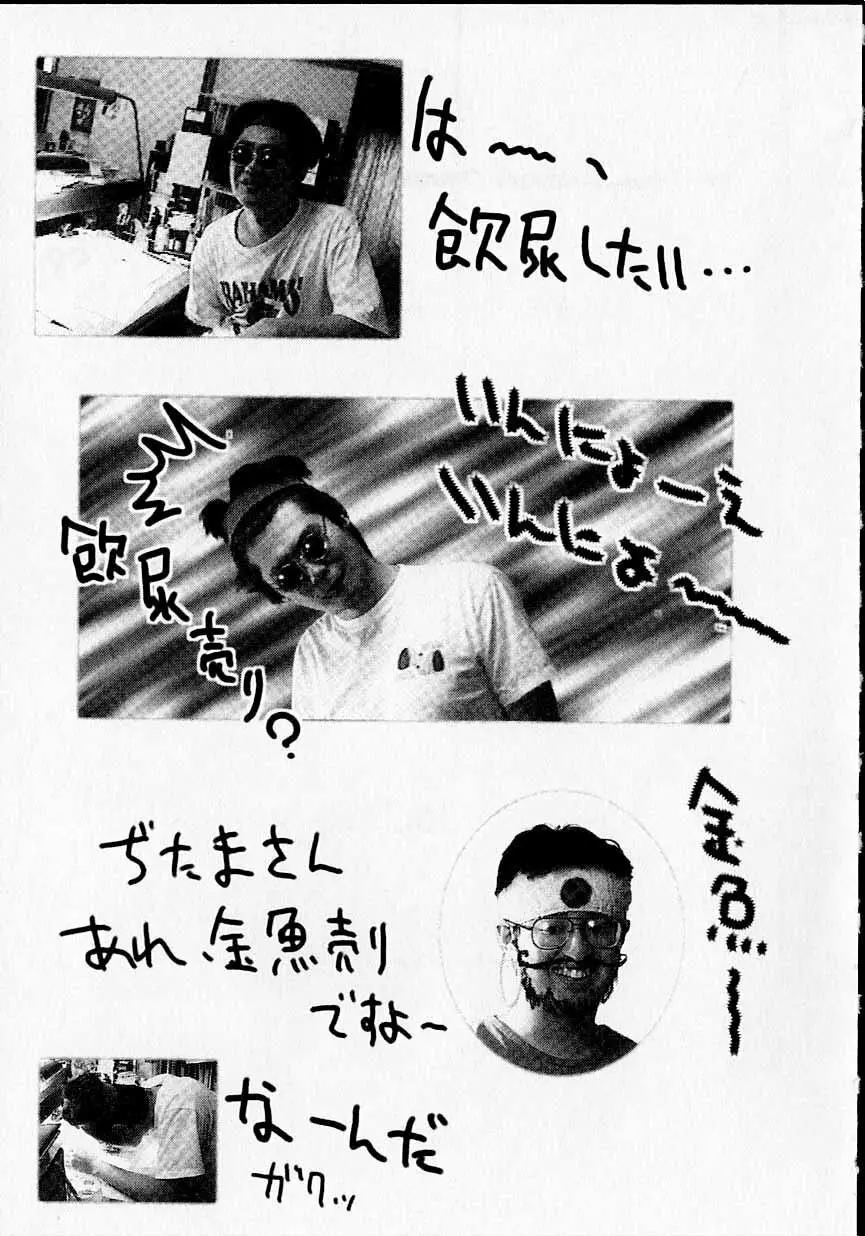 はー、
飲尿したい…
RAHAMS'
いんにょーえ
いんにょ〜
飲尿売り?
金魚〜
ぢたまさん
あれ、金魚売り
ですよ〜
なーんだ
ガクッ